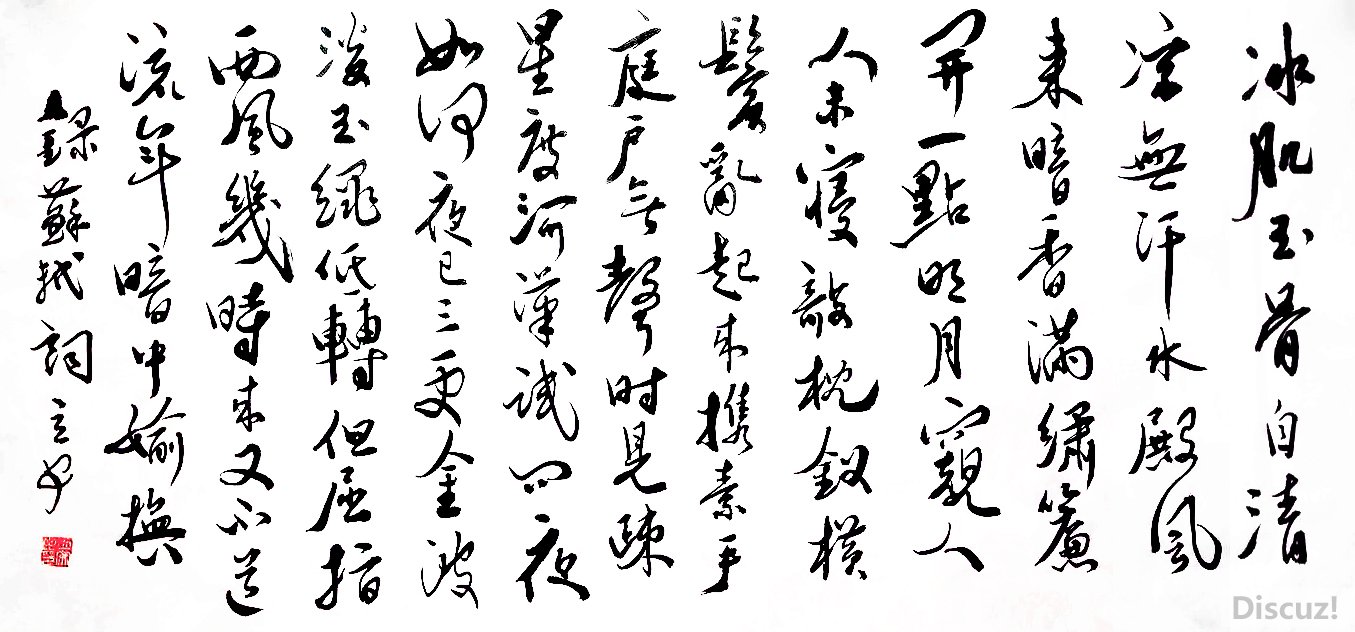 冰肌玉骨自清
涼無汗水殿風
来暗香滿繡簾
開一點明月窺人
人未寢敧枕釵橫
鬢亂起来携素手
庭戶無聲时見疎
星度河漢試問夜
如何夜已三更金波
淡玉繩低轉但屈指
西風幾時来又不道
流年暗中媮換
錄蘇軾詞
Discuz!